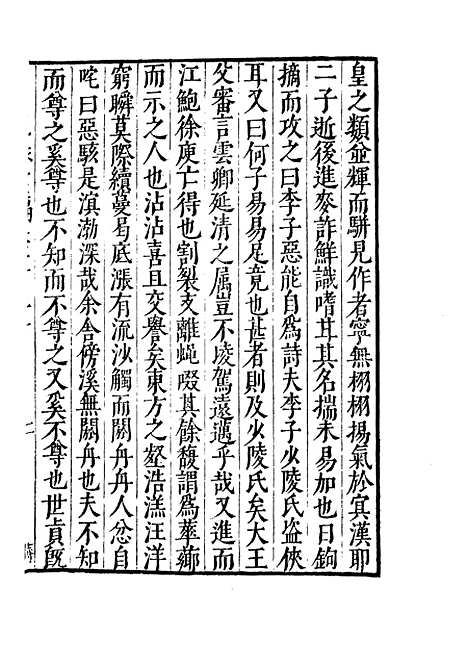 皇之類並輝而駢見作者寧無栩栩揚氣於㝠漢耶
二子逝後進麥詐鮮識嗜其名揣未易加也日鉤
摘而攻之曰李子惡能自爲詩夫李子少陵氏盜俠
耳又曰何子易易足竟也甚者則及少陵氏矣大王
父審言雲卿延清之属豈不凌駕遠邁乎哉又進而
江鮑徐庾亡得也割裂支離蠅啜其餘馥謂爲蕐薌
而示之人也沾沾喜且交譽矣東方之壑浩溔汪洋
窮瞬莫際續蔓曷底漲有流沙觸而闕舟舟人忿自
咤曰惡駭是滇渤深哉余舍傍溪無闕舟也夫不知
而尊之奚尊也不知而不尊之又奚不尊也世貞旣
二